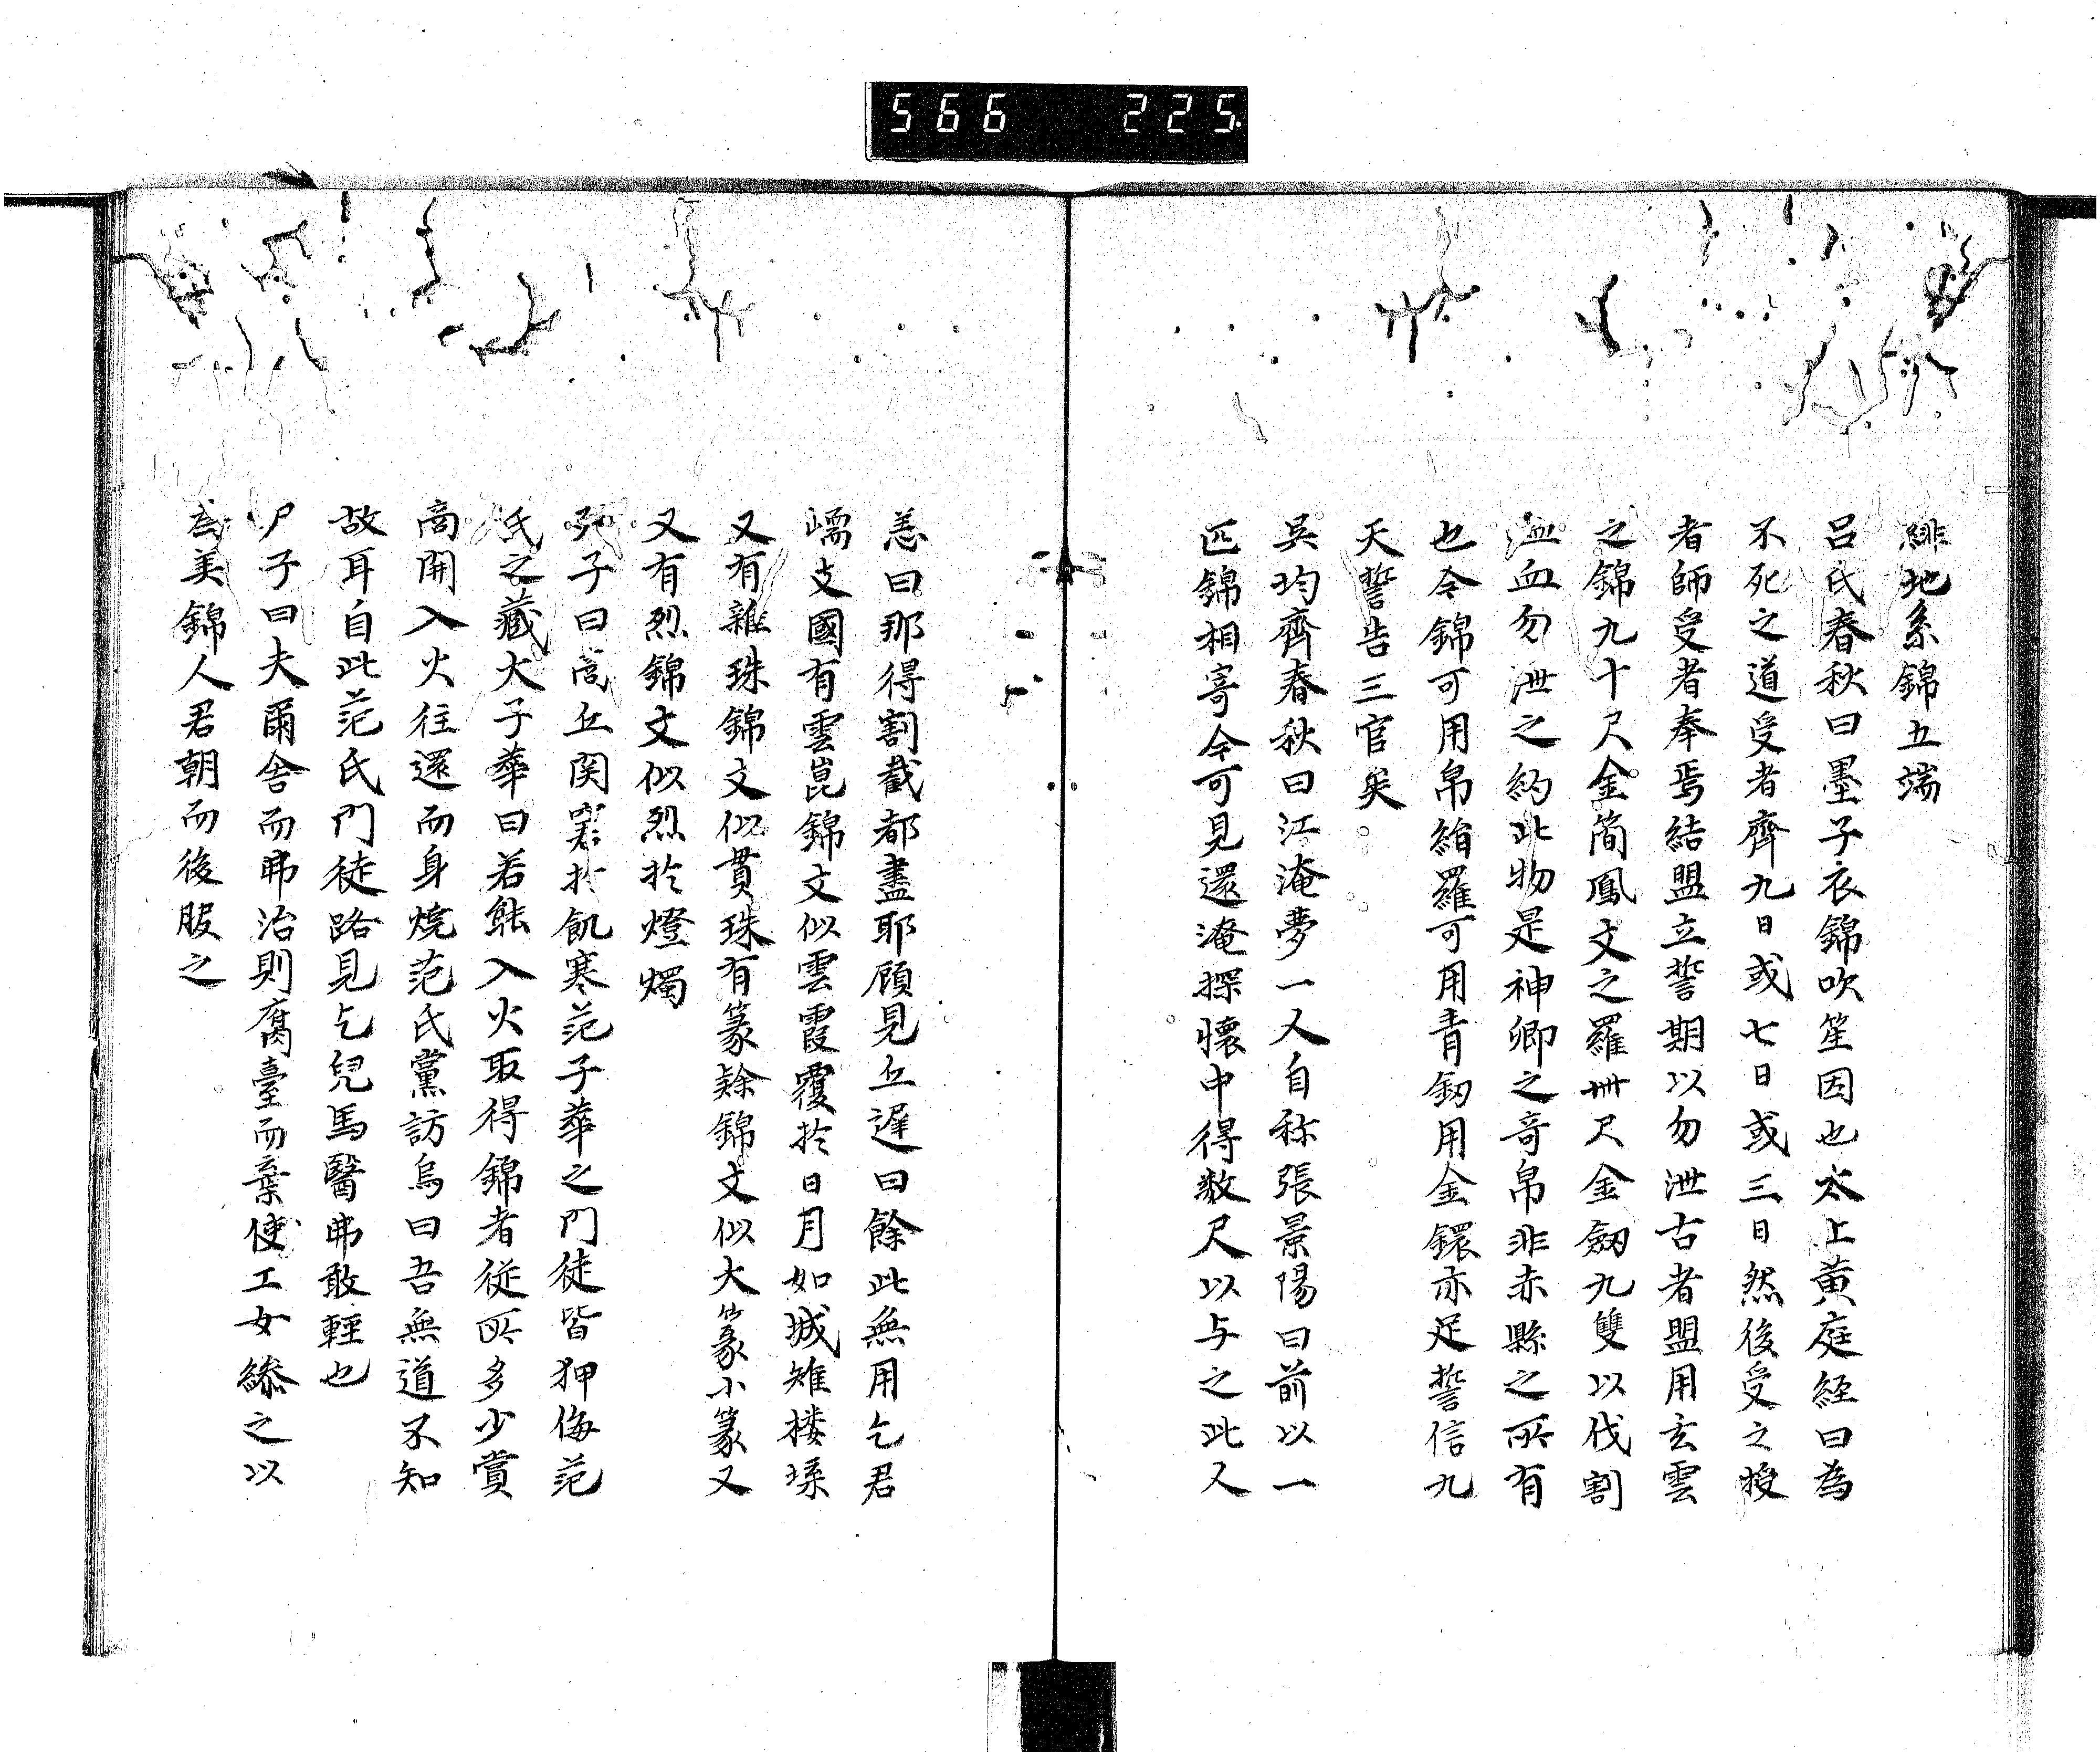 566 225
緋地糸錦五端
呂氏春秋曰墨子衣錦吹笙因也太上黄庭経曰為
不死之道受者齊九日或七日或三日然後受之授
者師受者奉焉結盟立誓期以勿泄古者盟用玄雲
之錦九十尺金簡鳳文之羅卌尺金釼九雙以伐割
血勿泄之約此物是神卿之奇帛非赤縣之所有
也今錦可用帛絹羅可用青釼用金鐶亦足誓信九
天誓告三官矣
吴均齊春秋曰江淹夢一人自称張景陽曰前以一
匹錦相寄今可見還淹探懐中得数尺以与之此人
恙曰那得割截都盡耶顧見丘遅曰餘此無用乞君
嶿支國有雲崑錦文似雲霞覆扵日月如城雉楼堞
又有雜珠錦文似貫珠有篆錦文似大篆小篆又
又有烈錦文似烈扵燈燭
列子曰啇丘開窘扵飢寒范子華之門徒皆狎侮范
氏之藏大子華曰若能入火取得錦者従所多少賞
啇開入火往還而身燒范氏黨訪烏曰吾無道不知
故耳自此范氏門徒路見乞兒馬醫弗敢輕也
尸子曰夫爾舎而弗治則腐臺而棄使工女繅之以
為美錦人君朝而後服之